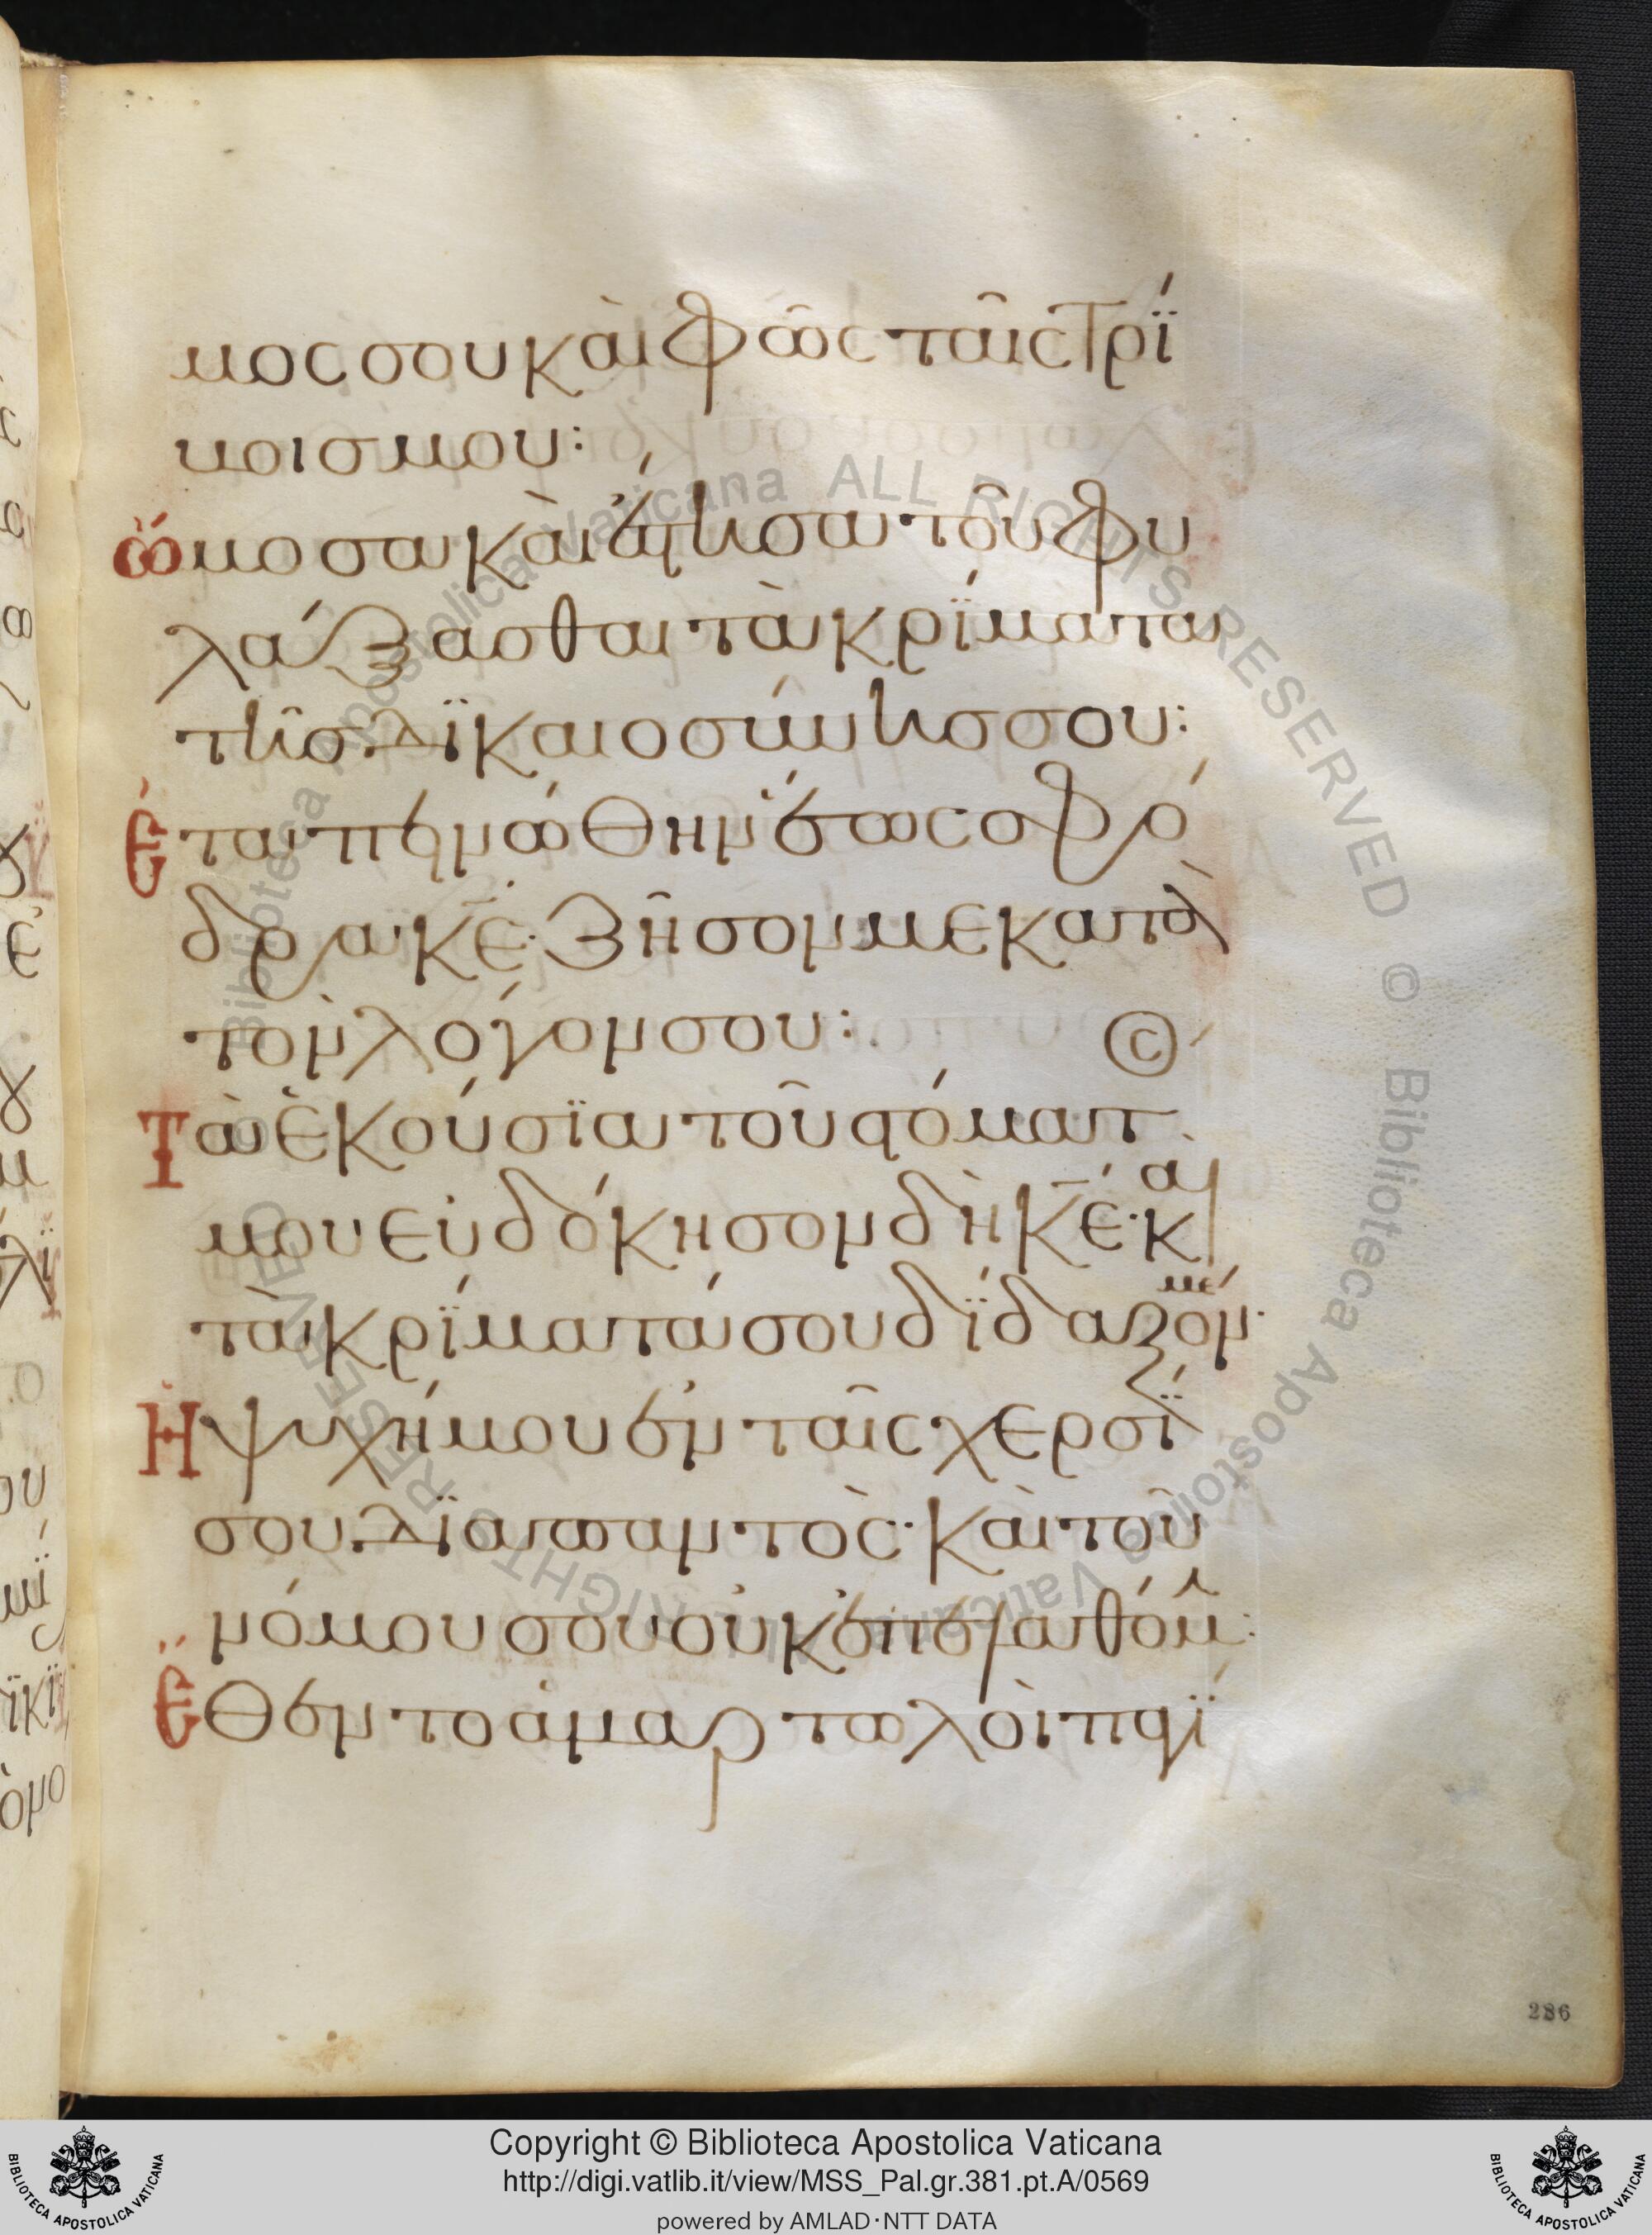 μοσ σου καὶ φῶς ταῖς τρί
βοισ μου:
ὤμοσα καὶ ἔστησα τοῦ φυ
λάξασθαι τὰ κρίματα
τῆσ δϊκαιοσύνησ σου:
ἐταπεινώθην ἕως σφό
δρα· κ̅ε̅· ζῆσόν με κατὰ
τὸν λόγον σου:
Τὰ ἑκούσϊα τοῦ στόματ
μου εὐδόκησον δὴ κ̅ε̅· καὶ
τὰ κρίματά σου δίδαξόν με·
Ἡ ψυχή μου ἐν ταῖς χερσί
σου δϊαπαντὸς· καὶ τοῦ
νόμου σου οὐκ ἐπελαθόμην:
ἔθεντο ἁμαρτωλοὶ παγί
286
Biblioteca Apostolica Vaticana ALL RIGHTS RESERVED ©
Biblioteca Apostolica Vaticana ALL RIGHTS RESERVED ©
Copyright © Biblioteca Apostolica Vaticana
http://digi.vatlib.it/view/MSS_Pal.gr.381.pt.A/0569
powered by AMLAD·NTT DATA
BIBLIOTECA APOSTOLICA VATICANA
BIBLIOTECA APOSTOLICA VATICANA